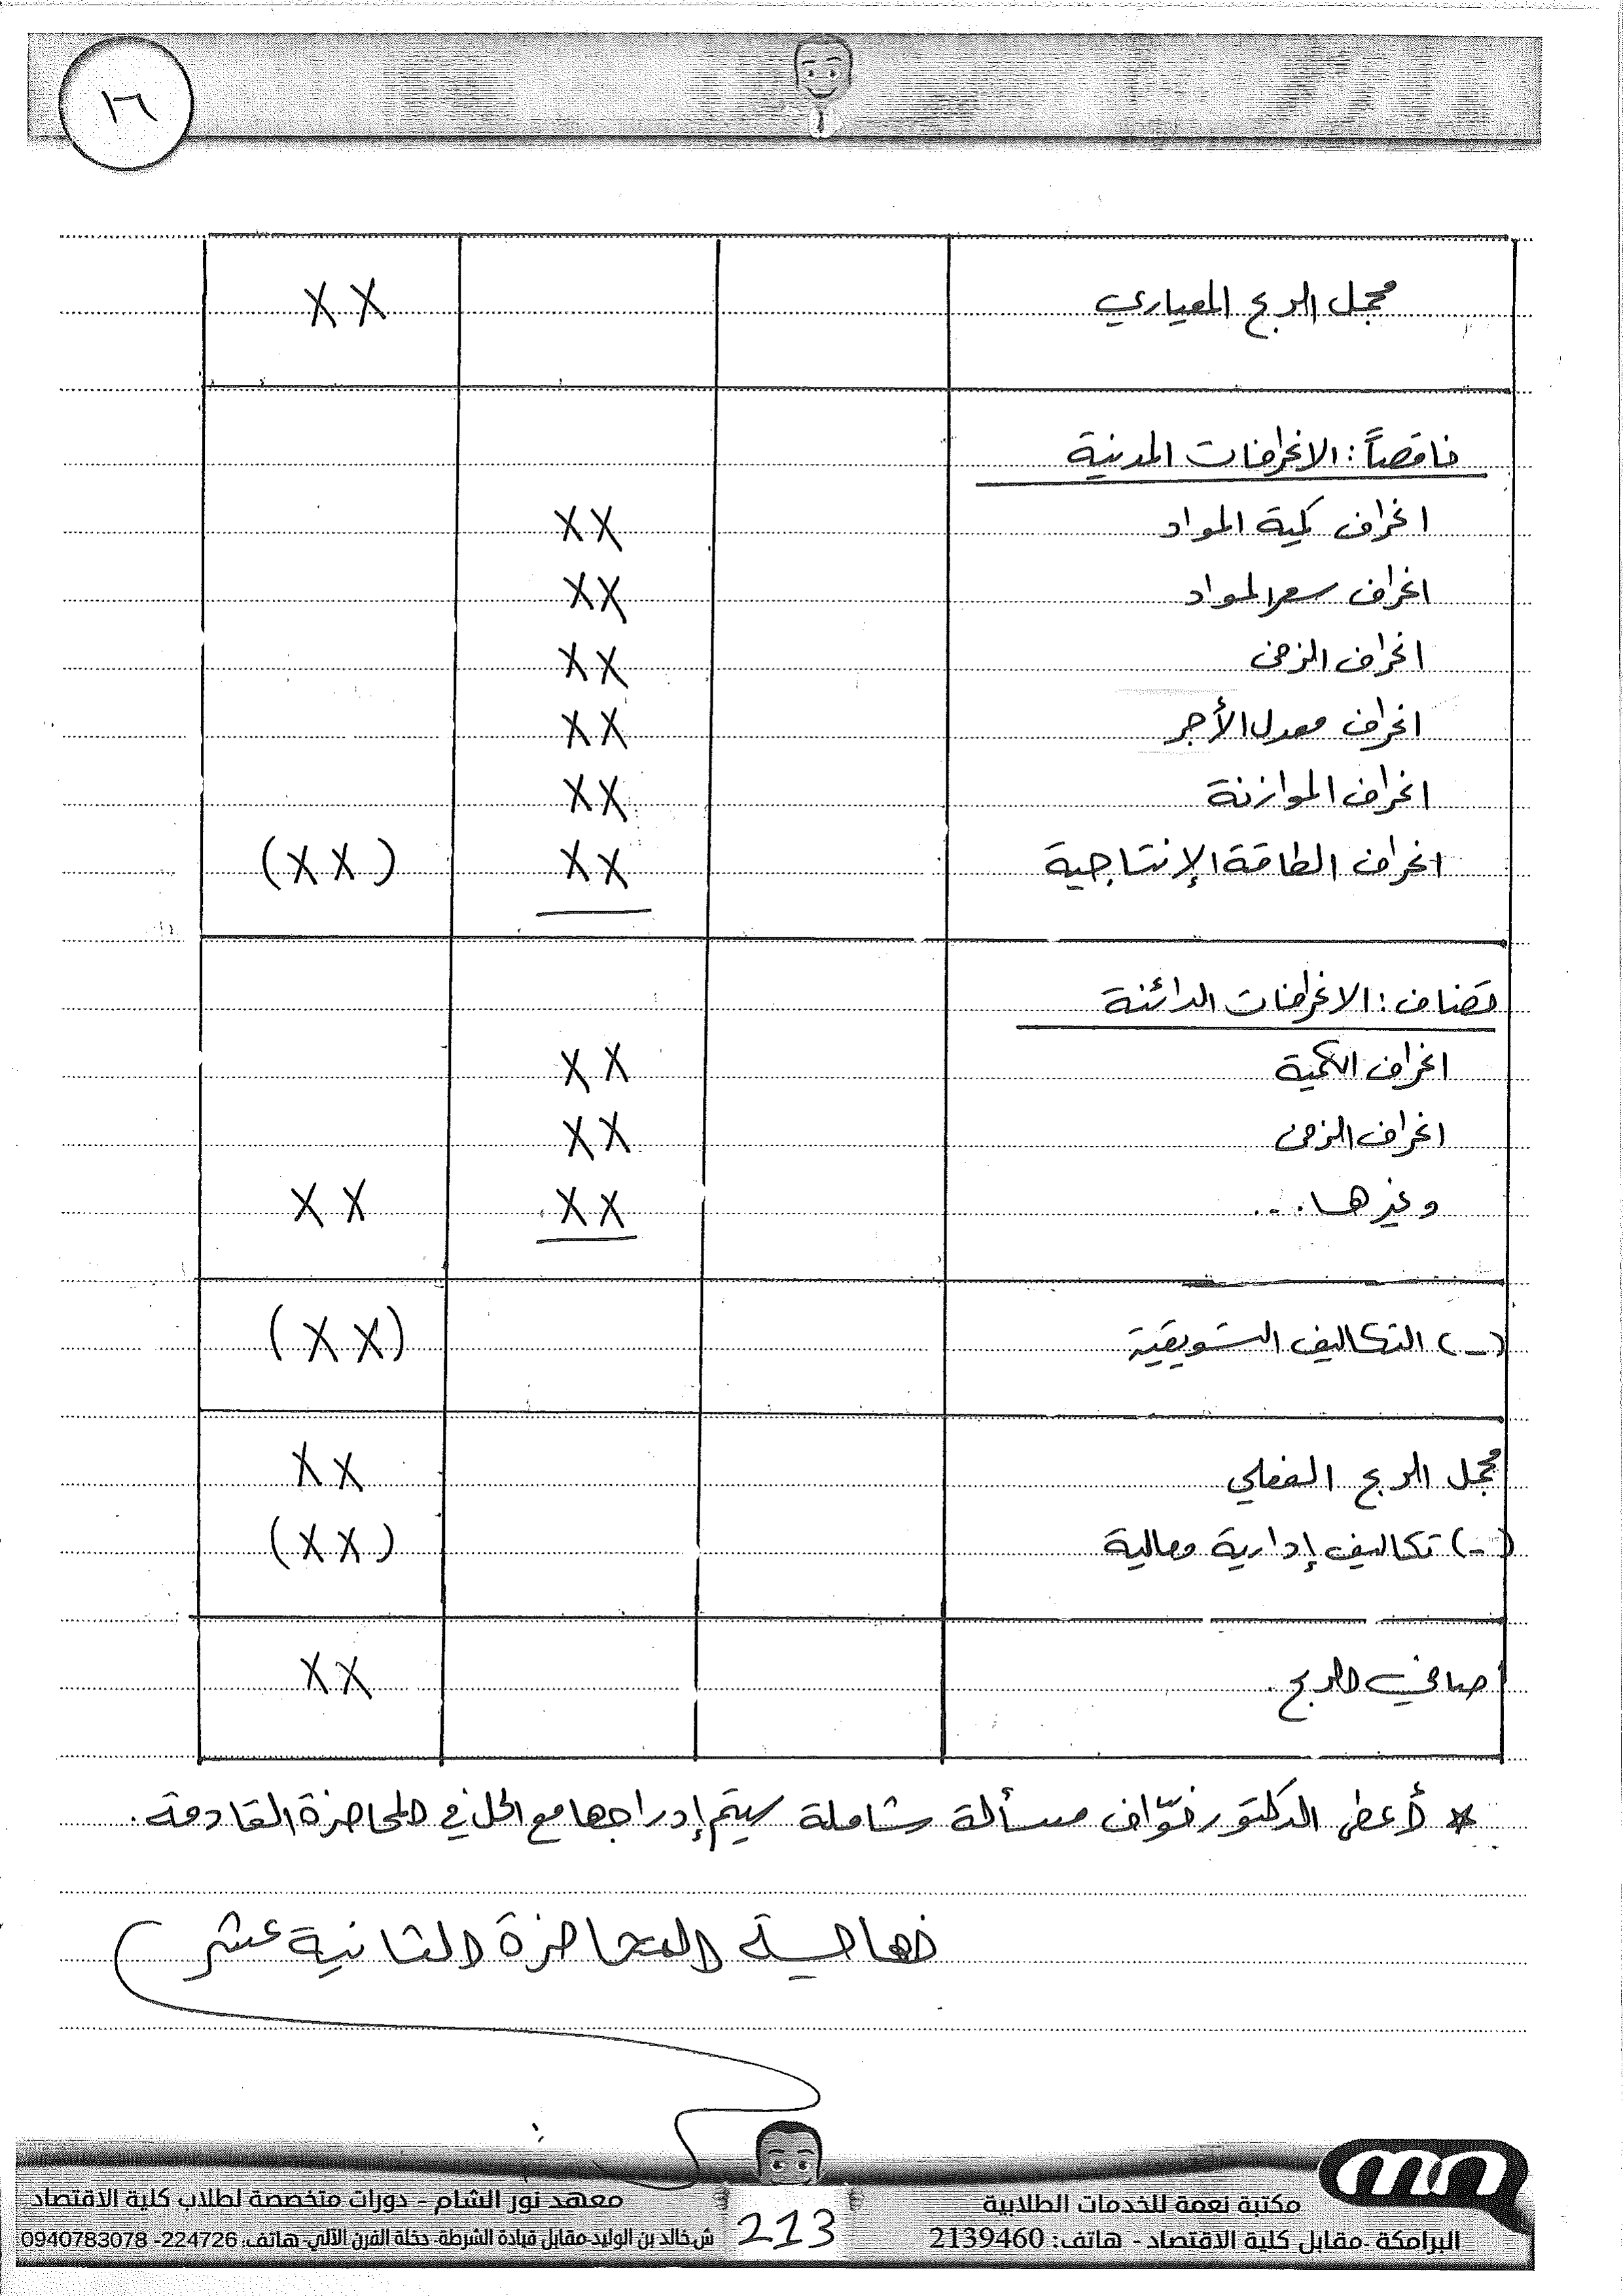 ١٦
مجمل الربح المعياري XX
ناقصاً: الانحرافات المدينة
انحراف كمية المواد XX
انحراف سعر المواد XX
انحراف الزمن XX
انحراف معدل الأجر XX
انحراف الموازنة XX
انحراف الطاقة الإنتاجية XX (XX)
تضاف: الانحرافات الدائنة
انحراف الكمية XX
انحراف الزمن XX
وغيرها... XX XX
(-) التكاليف التسويقية (XX)
مجمل الربح الفعلي XX
(-) تكاليف إدارية ومالية (XX)
صافي الربح XX
* أعطى الدكتور فوّاف مسألة شاملة سيتم إدراجها مع الحل في المحاضرة القادمة.
نهاية المحاضرة الثانية عشر
مكتبة نعمة للخدمات الطلابية
البرامكة - مقابل كلية الاقتصاد - هاتف: 2139460
213
معهد نور الشام - دورات متخصصة لطلاب كلية الاقتصاد
ش خالد بن الوليد - مقابل قيادة الشرطة - دخلة الفرن الآلي - هاتف: 224726 - 0940783078